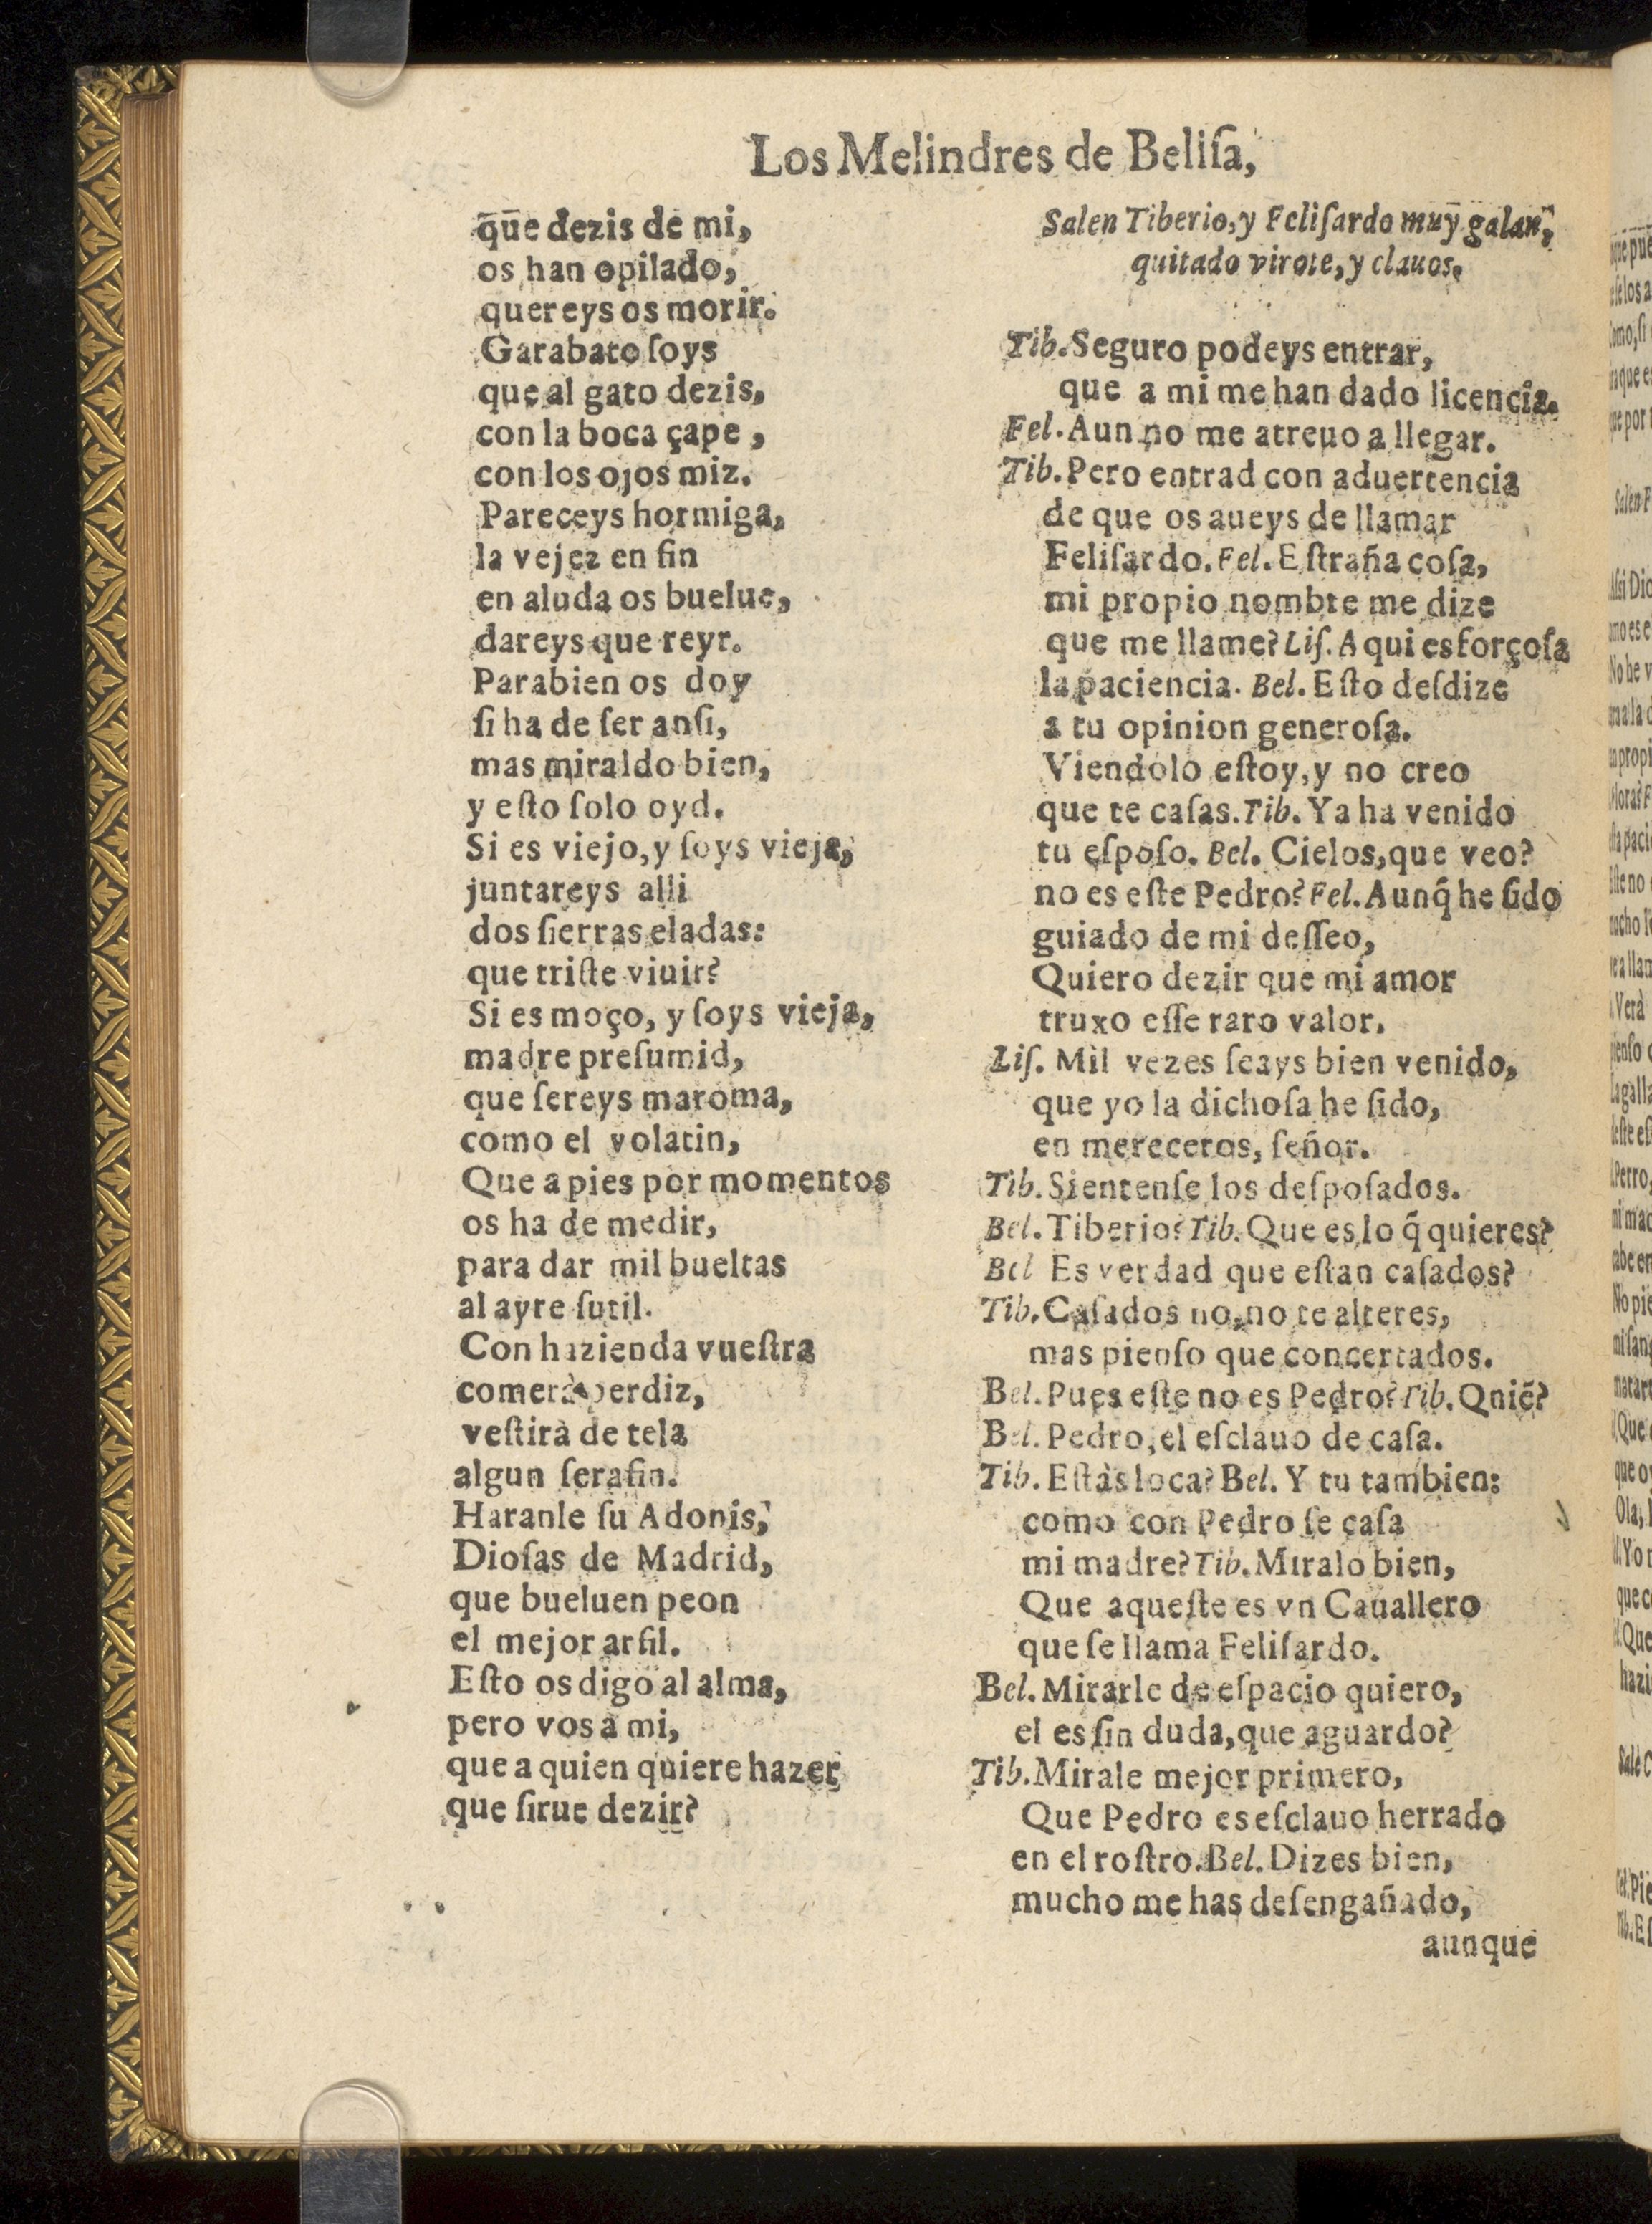 Los Melindres de Beliſa,
que dezis de mi,
os han opilado,
quereys os morir.
Garabato ſoys
que al gato dezis,
con la boca çape,
con los ojos miz.
Pareceys hormiga,
la vejez en fin
en aluda os buelue,
dareys que reyr.
Parabien os doy
ſi ha de ſer anſi,
mas miraldo bien,
y eſto ſolo oyd.
Si es viejo, y ſoys vieja,
juntareys alli
dos ſierras eladas:
que triſte viuir?
Si es moço, y ſoys vieja,
madre preſumid,
que ſereys maroma,
como el volatin,
Que a pies por momentos
os ha de medir,
para dar mil bueltas
al ayre ſutil.
Con hazienda vueſtra
comerà perdiz,
veſtirà de tela
algun ſerafin.
Haranle ſu Adonis,
Dioſas de Madrid,
que bueluen peon
el mejor arfil.
Eſto os digo al alma,
pero vos a mi,
que a quien quiere hazer
que ſirue dezir?
Salen Tiberio, y Feliſardo muy galan,
quitado virote, y clauos.
Tib. Seguro podeys entrar,
que a mi me han dado licencia.
Fel. Aun no me atreuo a llegar.
Tib. Pero entrad con aduertencia
de que os aueys de llamar
Feliſardo. Fel. Eſtraña coſa,
mi propio nombre me dize
que me llame? Liſ. Aqui es forçoſa
la paciencia. Bel. Eſto deſdize
a tu opinion generoſa.
Viendolo eſtoy, y no creo
que te caſas. Tib. Ya ha venido
tu eſpoſo. Bel. Cielos, que veo?
no es eſte Pedro? Fel. Aunq̃ he ſido
guiado de mi deſſeo,
Quiero dezir que mi amor
truxo eſſe raro valor.
Liſ. Mil vezes ſeays bien venido,
que yo la dichoſa he ſido,
en mereceros, ſeñor.
Tib. Sientenſe los deſpoſados.
Bel. Tiberio? Tib. Que es lo q̃ quieres?
Bel Es verdad que eſtan caſados?
Tib. Caſados no, no te alteres,
mas pienſo que concertados.
Bel. Pues eſte no es Pedro? Tib. Qniẽ?
Bel. Pedro, el eſclauo de caſa.
Tib. Eſtàs loca? Bel. Y tu tambien:
como con Pedro ſe caſa
mi madre? Tib. Miralo bien,
Que aqueſte es vn Cauallero
que ſe llama Feliſardo.
Bel. Mirarle de eſpacio quiero,
el es ſin duda, que aguardo?
Tib. Mirale mejor primero,
Que Pedro es eſclauo herrado
en el roſtro. Bel. Dizes bien,
mucho me has deſengañado,
aunque